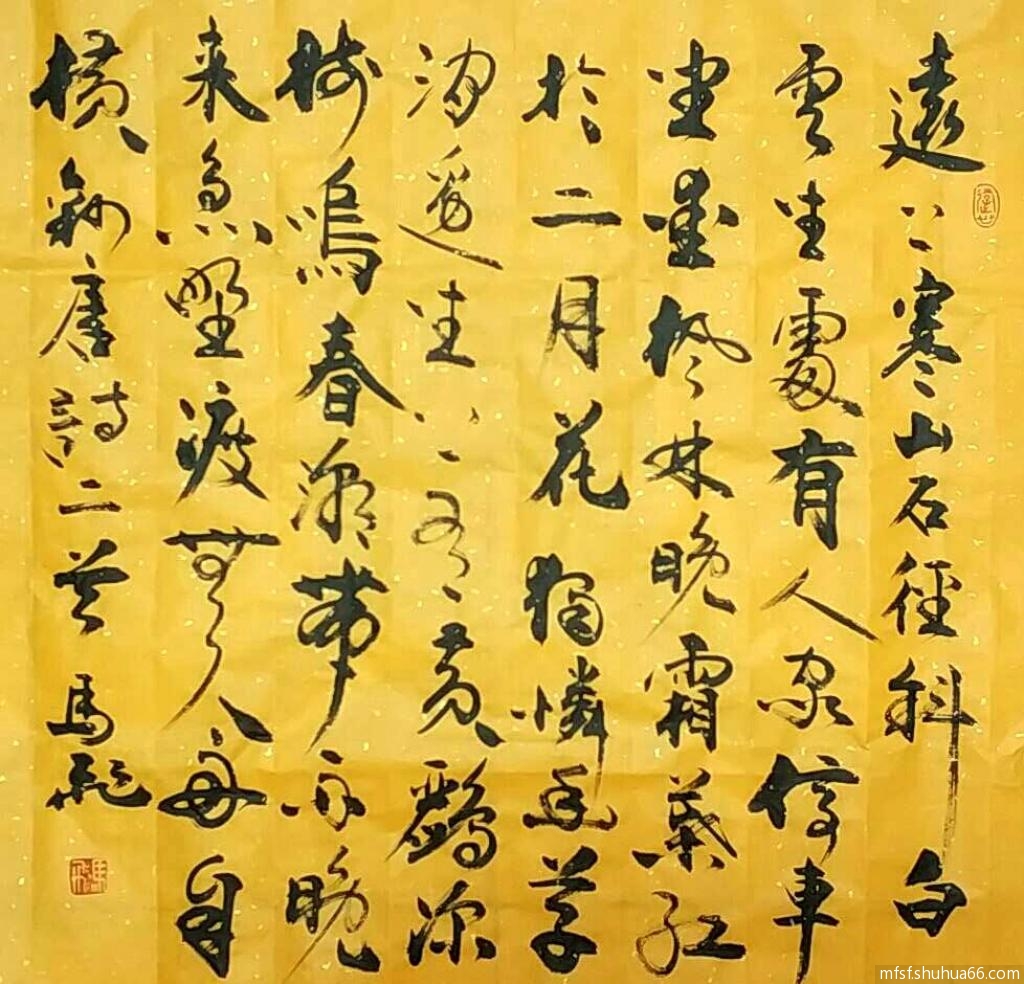 遠上寒山石徑斜白
雲生處有人家停車
坐愛楓林晚霜葉紅
於二月花獨憐幽草
澗邊生上有黃鸝深
樹鳴春潮帶雨晚
来急野渡無人舟自
橫 錄唐詩二首 馬飛
mfsf.shuhua66.com